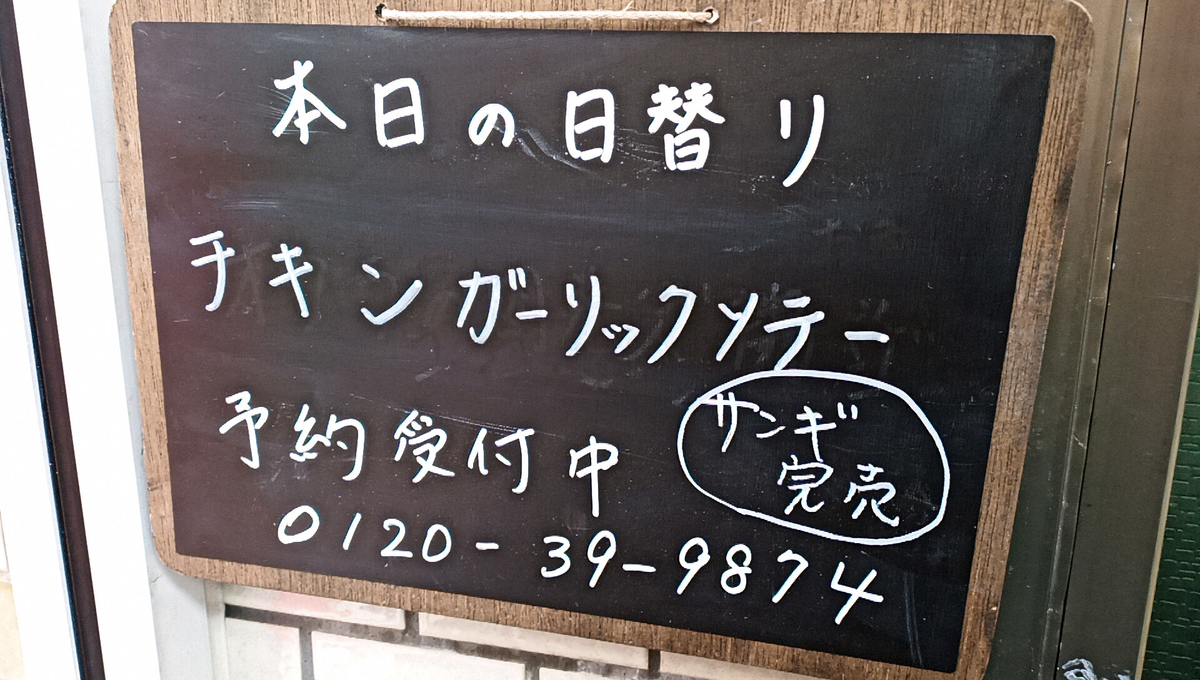 本日の日替り
チキンガーリックソテー
サンギ
完売
予約受付中
0120-39-9874